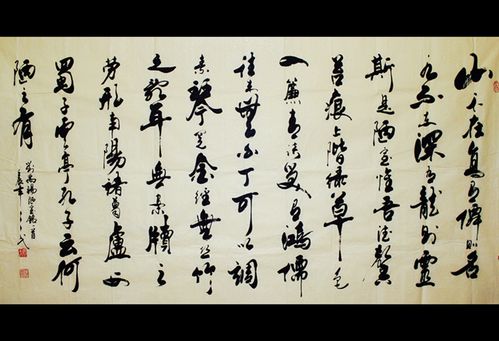 山不在高有僊則名
水不在深有龍則靈
斯是陋室惟吾德馨
苔痕上階綠草色
入簾青談笑有鴻儒
往來無白丁可以調
素琴閱金經無絲竹
之亂耳無案牘之
勞形南陽諸葛廬西
蜀子雲亭孔子云何
陋之有
劉禹錫陋室銘一首